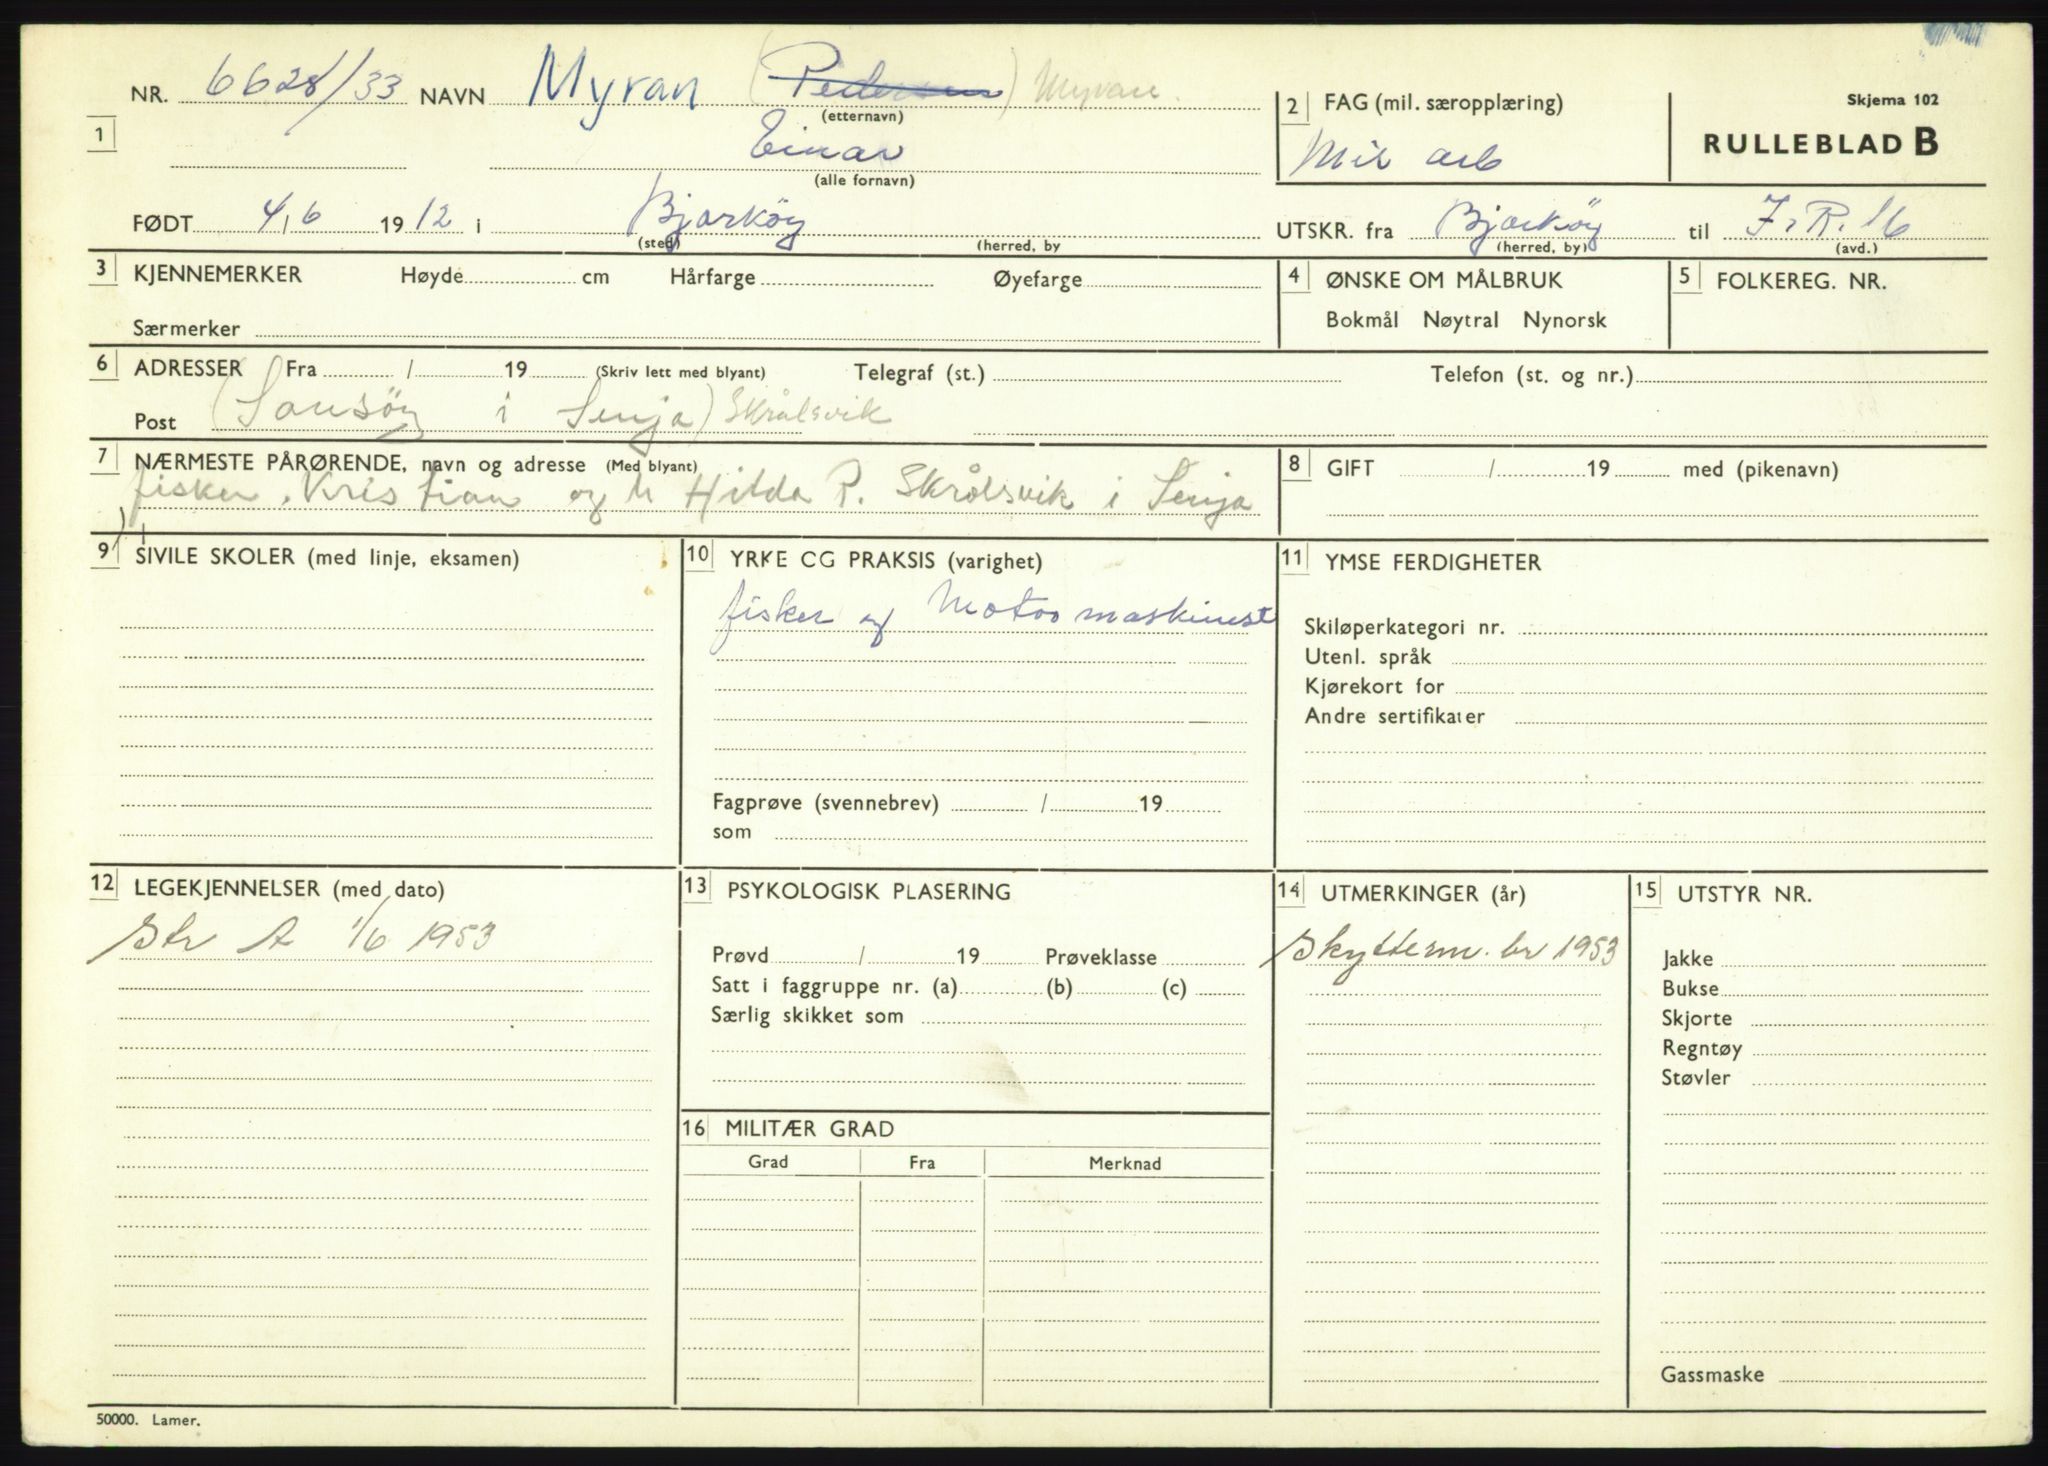 Skjema 102
RULLEBLAD B
NR. 6628/33 NAVN Myran (Pedersen) Myran.
(etternavn)
1
Einar
(alle fornavn)
FØDT 4/6 1912 i Bjarköy
(sted) (herred, by
2 FAG (mil. særopplæring)
Mil arb
UTSKR. fra Bjarköy til I.R. 16
(herred, by) (avd.)
3 KJENNEMERKER Høyde cm Hårfarge Øyefarge
Særmerker
4 ØNSKE OM MÅLBRUK
Bokmål Nøytral Nynorsk
5 FOLKEREG. NR.
6 ADRESSER Fra / 19 (Skriv lett med blyant) Telegraf (st.) Telefon (st. og nr.)
Post ( i Senja) Skrålsvik
7 NÆRMESTE PÅRØRENDE, navn og adresse (Med blyant)
fisker. Kristian og M Hilda P. Skrolsvik i Senja
8 GIFT / 19 med (pikenavn)
9 SIVILE SKOLER (med linje, eksamen)
10 YRKE CG PRAKSIS (varighet)
fisker og Motormaskinest
Fagprøve (svennebrev) / 19
som
11 YMSE FERDIGHETER
Skiløperkategori nr.
Utenl. språk
Kjørekort for
Andre sertifikater
12 LEGEKJENNELSER (med dato)
Str A 1/6 1953
13 PSYKOLOGISK PLASERING
Prøvd / 19 Prøveklasse
Satt i faggruppe nr. (a) (b) (c)
Særlig skikket som
14 UTMERKINGER (år)
Skytterm. br 1953
15 UTSTYR NR.
Jakke
Bukse
Skjorte
Regntøy
Støvler
Gassmaske
16 MILITÆR GRAD
Grad Fra Merknad
50000. Lamer.